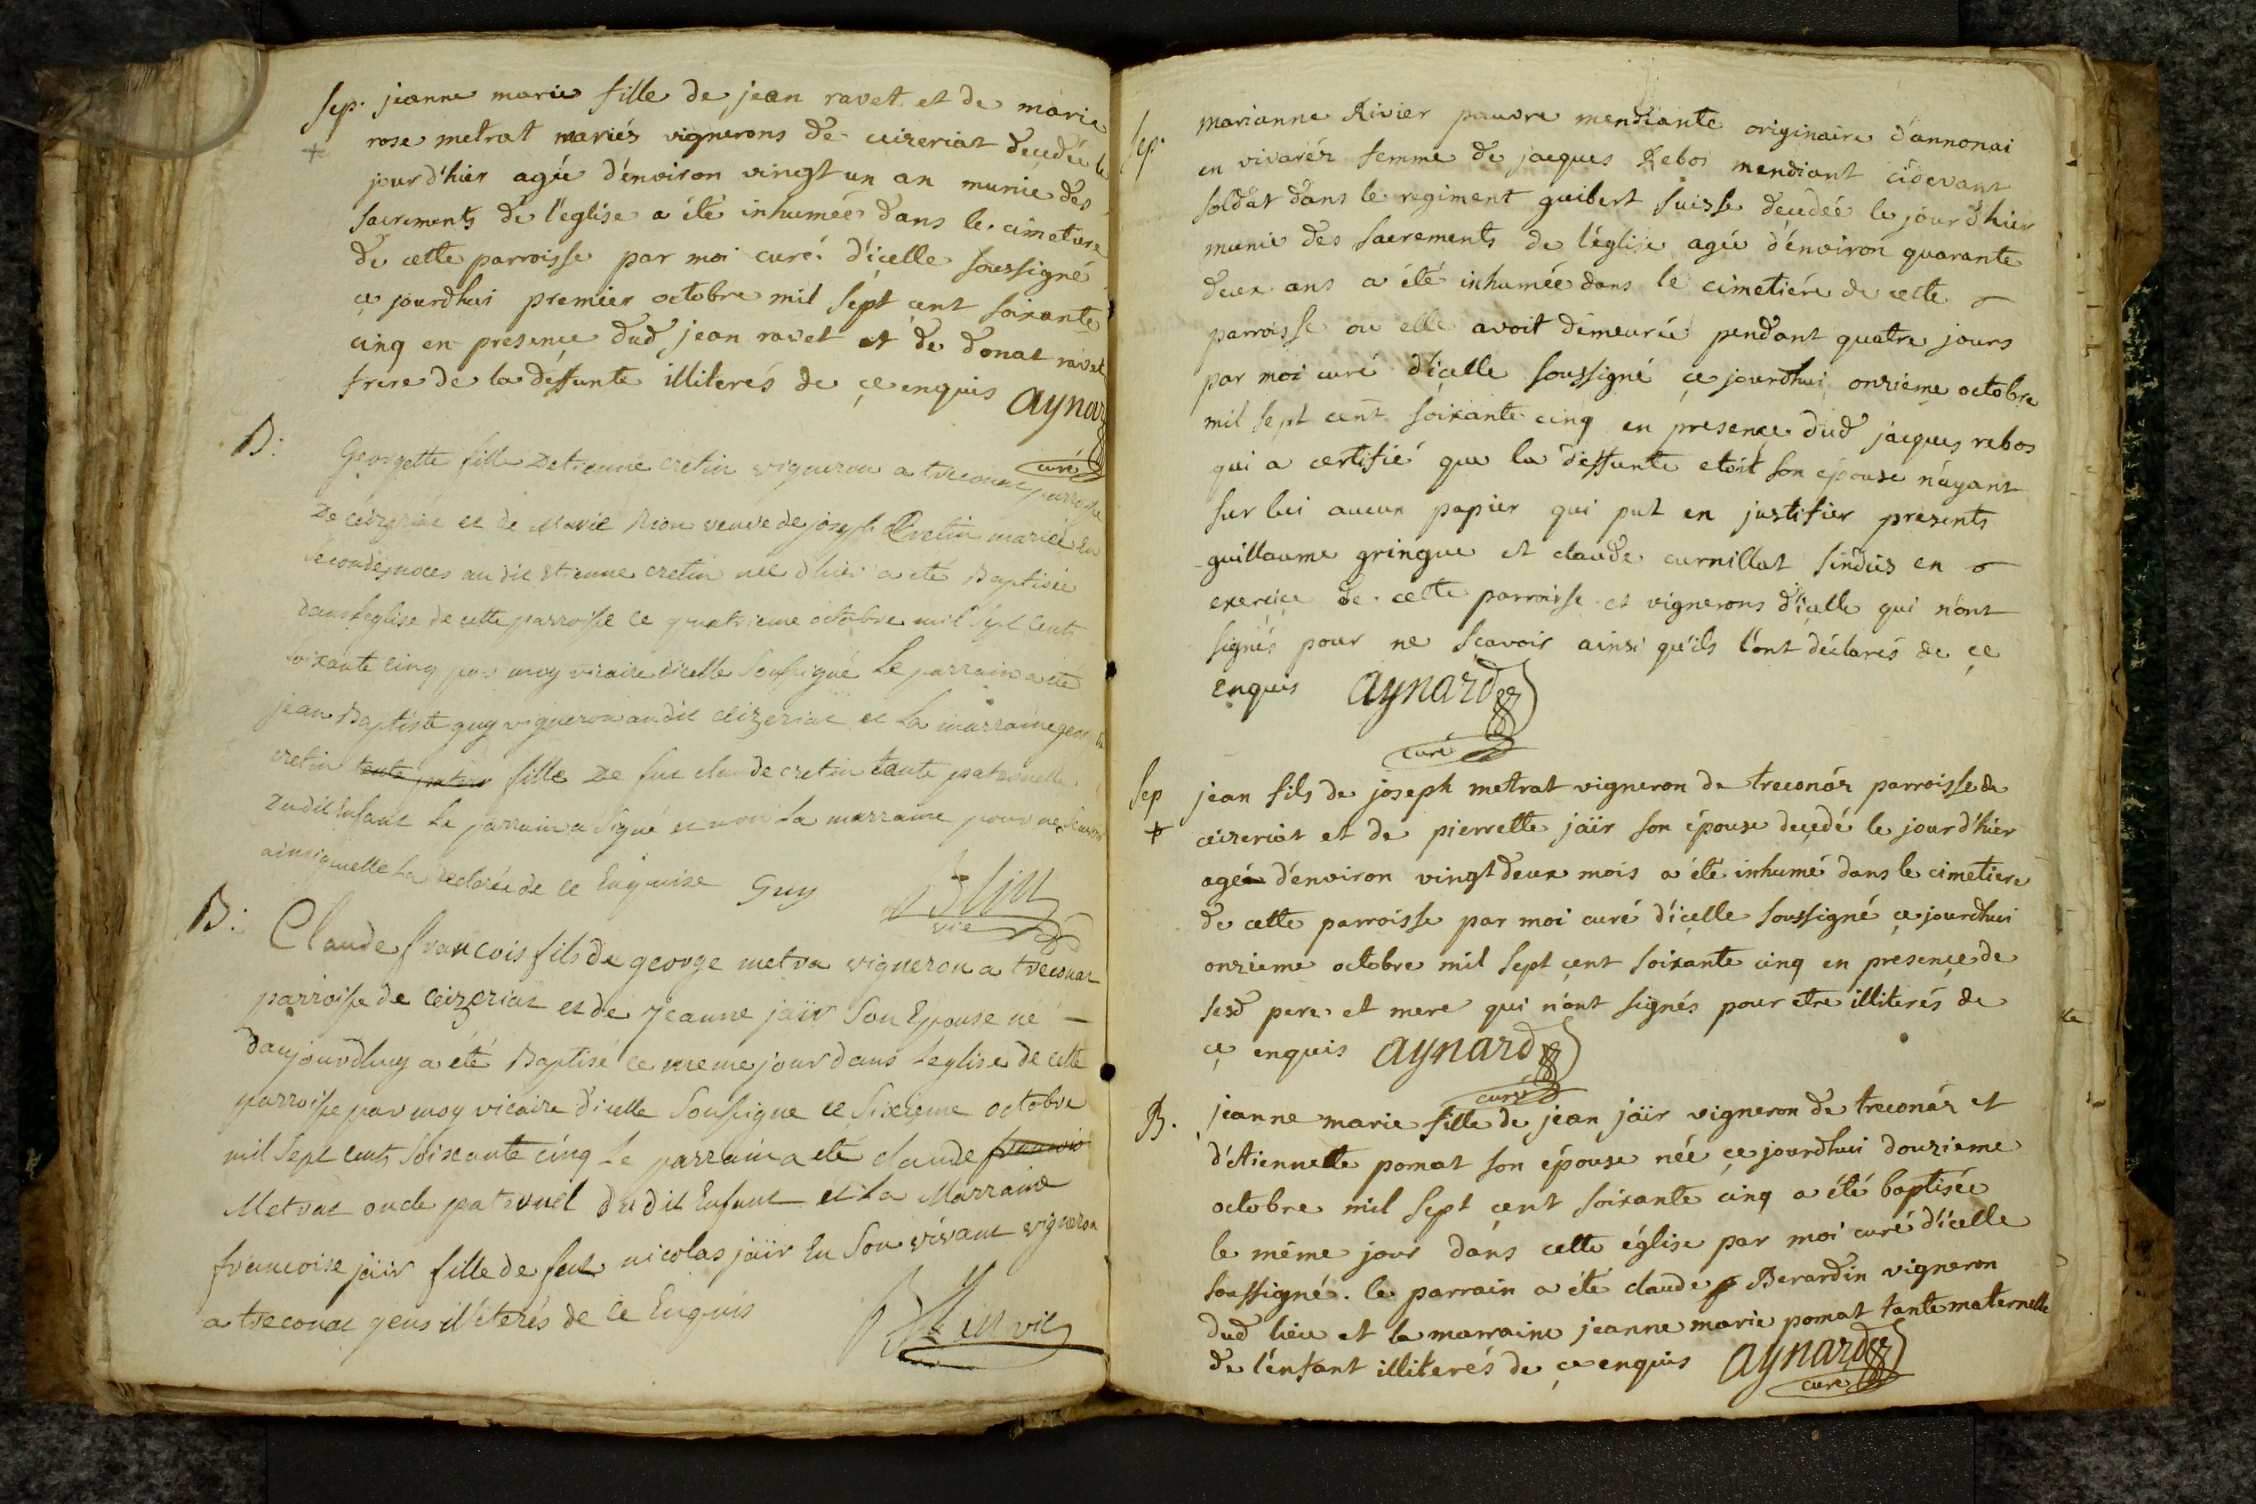 Sep. jeanne marie fille de jean ravet et de marie
rose metrat mariés vignerons de ceizeriat decedée le
jour d'hier agée d'environ vingt un an munie des
sacrements de l'eglise a été inhumée dans le cimetiere
de cette parroisse par moi curé d'icelle soussigné
ce jourdhui premier octobre mil sept cent soixante
cinq en presence dud jean ravet et de donat ravet
frere de la deffunte illiterés de ce enquis aynard
curé
B: Georgette fille Detienne cretin vigneron a treconas parroisse
De ceizeriat et de Marie Rion veuve de joseph Cretin mariée En
secondes noces au dit Etienne cretin née d'hier a été Baptisée
dans leglise de cette parroisse ce quatrieme octobre mil sept Cents
soixante cinq par moy vicaire d'icelle Soussigné Le parrain a été
jean Baptiste guy vigneron audit Ceizeriat et La marraine
cretin tante pater fille De feu claude cretin tante paternelle
Dudit Enfant Le parrain a signé et non La marraine pour ne scavoir
ainsi quelle La declarée de ce Enquise Guy
vic
B: Claude francois fils de george metra vigneron a treconas
parroisse de Ceizeriat et de jeanne jaïr Son Epouse né
daujourdhuy a été Baptisé ce meme jour dans Leglise de cette
parroisse par moy vicaire d'icelle Soussigne ce Sixieme octobre
mil Sept cents Soixante cinq Le parrain a été claude francois
Metrat oncle paternel du dit Enfant et La Marraine
francoise jaïr fille de feu nicolas jaïr En Son vivant vigneron
a treconas gens illéterés de ce Enquis
vic
Sep. marianne Rivier pauvre mendiante originaire d'annonai
en vivaréz femme de jacques Rebos mendiant cidevant
soldat dans le regiment guibert suisse decedée le jour d'hier
munie des sacrements de l'église agée d'environ quarante
deux ans a été inhumée dans le cimetiére de cette
parroisse ou elle avoit demeurée pendant quatre jours
par moi curé d'icelle soussigné ce jourdhui onzième octobre
mil sept cent soixante cinq en presence dud jacques rebos
qui a certifié que la deffunte etoit son épouse n'ayant
sur lui aucun papier qui put en justifier presents
guillaume gringue et claude curnillat sindics en
exercice de cette parroisse et vignerons d'icelle qui n'ont
signés pour ne scavoir ainsi qu'ils l'ont déclarés de ce
enquis aynard
curé
Sep jean fils de joseph metrat vigneron de treconáz parroisse de
ceizeriat et de pierrette jaïr son épouse decedé le jour d'hier
agé d'environ vingt deux mois a été inhumé dans le cimetiere
de cette parroisse par moi curé d'icelle soussigné ce jourdhui
onzieme octobre mil sept cent soixante cinq en presence de
sesd pere et mere qui n'ont signés pour etre illiterés de
ce enquis aynard
curé
B. jeanne marie fille de jean jaïr vigneron de treconáz et
d'étiennette pomat son épouse née ce jourdhui douzieme
octobre mil sept cent soixante cinq a été baptisée
le même jour dans cette église par moi curé d'icelle
soussigné. le parrain a été claude Berardin vigneron
dud lieu et la marraine jeanne marie pomat tante maternelle
de l'enfant illiterés de ce enquis aynard
curé